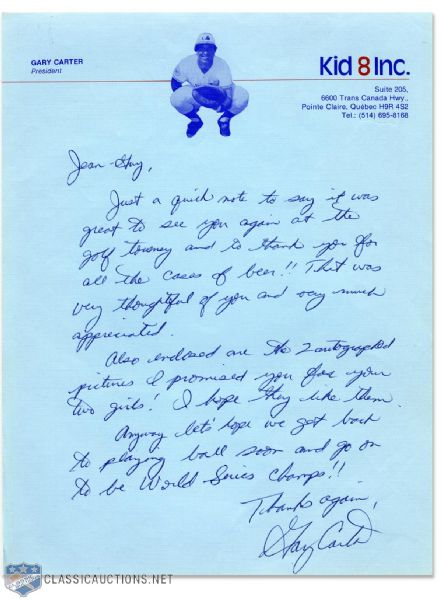 GARY CARTER
President
Kid 8 Inc.
Suite 205,
6600 Trans Canada Hwy.,
Pointe Claire, Québec H9R 4S2
Tel.: (514) 695-8168
Jean-Guy,
Just a quick note to say it was
great to see you again at the
golf tourney and to thank you for
all the cases of beer!! That was
very thoughtful of you and very much
appreciated.
Also enclosed are the 2 autographed
pictures I promised you for your
two girls! I hope they like them.
Anyway let's hope we get back
to playing ball soon and go on
to be World Series Champs!!
Thanks again,
Gary Carter
CLASSICAUCTIONS.NET